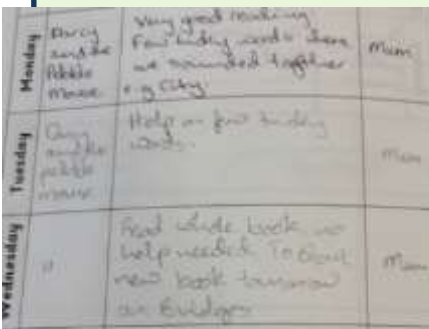 Monday
Darcy
and the
Pebble
Mouse
Very good reading
Few tricky words there
we sounded together
e.g City.
Mum
Tuesday
and the
pebble
mouse
Help on few tricky
words.
Mum
Wednesday
"
Read whole book no
help needed. To start
new book tomorrow
on Bridges
Mum